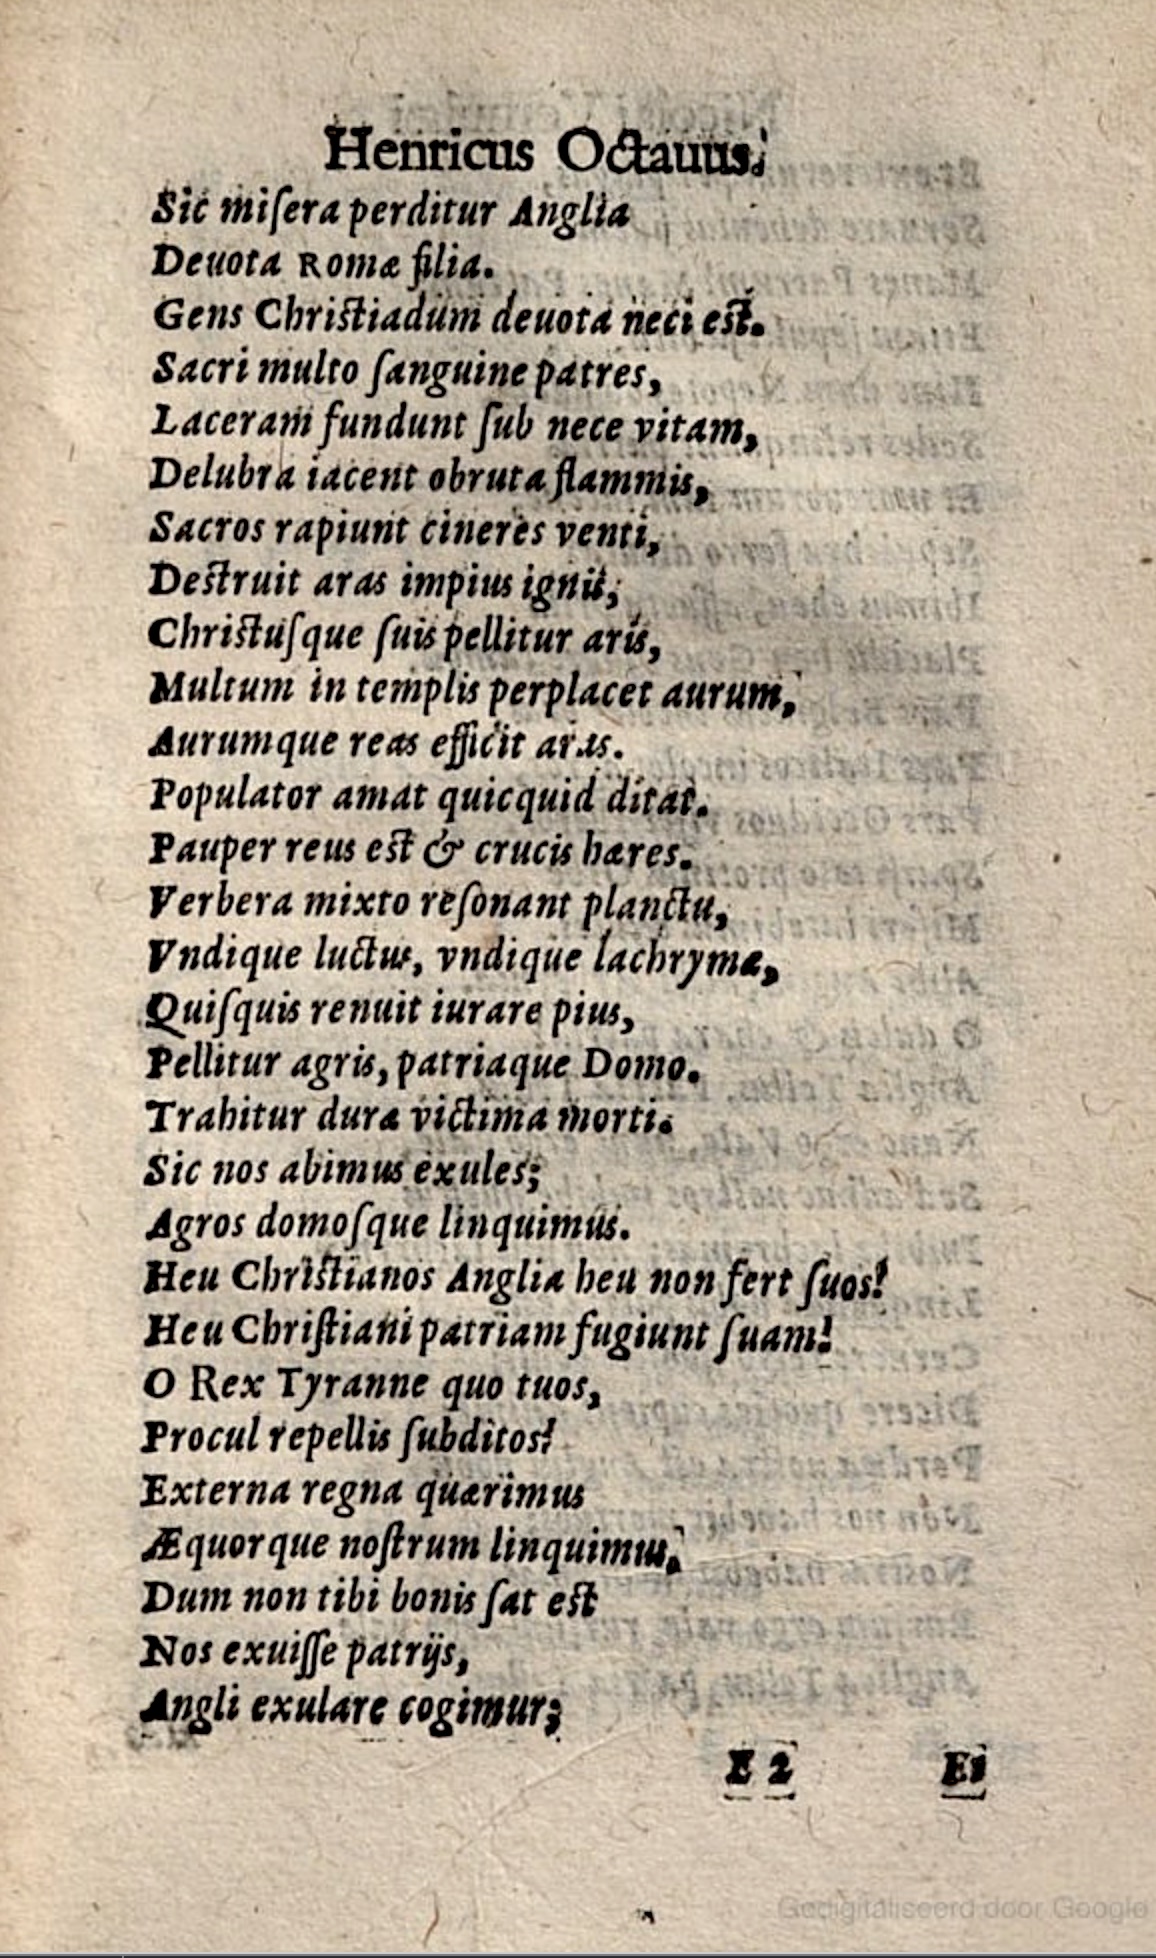 Henricus Octauus.
Sic miſera perditur Anglia
Deuota Romæ filia.
Gens Chriſtiadum deuota neci eſt.
Sacri multo ſanguine patres,
Laceram fundunt ſub nece vitam,
Delubra iacent obruta flammis,
Sacros rapiunt cineres venti,
Deſtruit aras impius ignis,
Chriſtuſque ſuis pellitur aris,
Multum in templis perplacet aurum,
Aurumque reas efficit aras.
Populator amat quicquid ditat.
Pauper reus eſt & crucis hæres.
Verbera mixto reſonant planctu,
Vndique luctus, vndique lachrymæ,
Quiſquis renuit iurare pius,
Pellitur agris, patriaque Domo.
Trahitur duræ victima morti.
Sic nos abimus exules;
Agros domoſque linquimus.
Heu Chriſtianos Anglia heu non fert ſuos!
Heu Chriſtiani patriam fugiunt ſuam!
O Rex Tyranne quo tuos,
Procul repellis ſubditos!
Externa regna quærimus
Æquorque noſtrum linquimus,
Dum non tibi bonis ſat eſt
Nos exuiſſe patrijs,
Angli exulare cogimur;
E 2 Ei
Gedigitaliseerd door Google